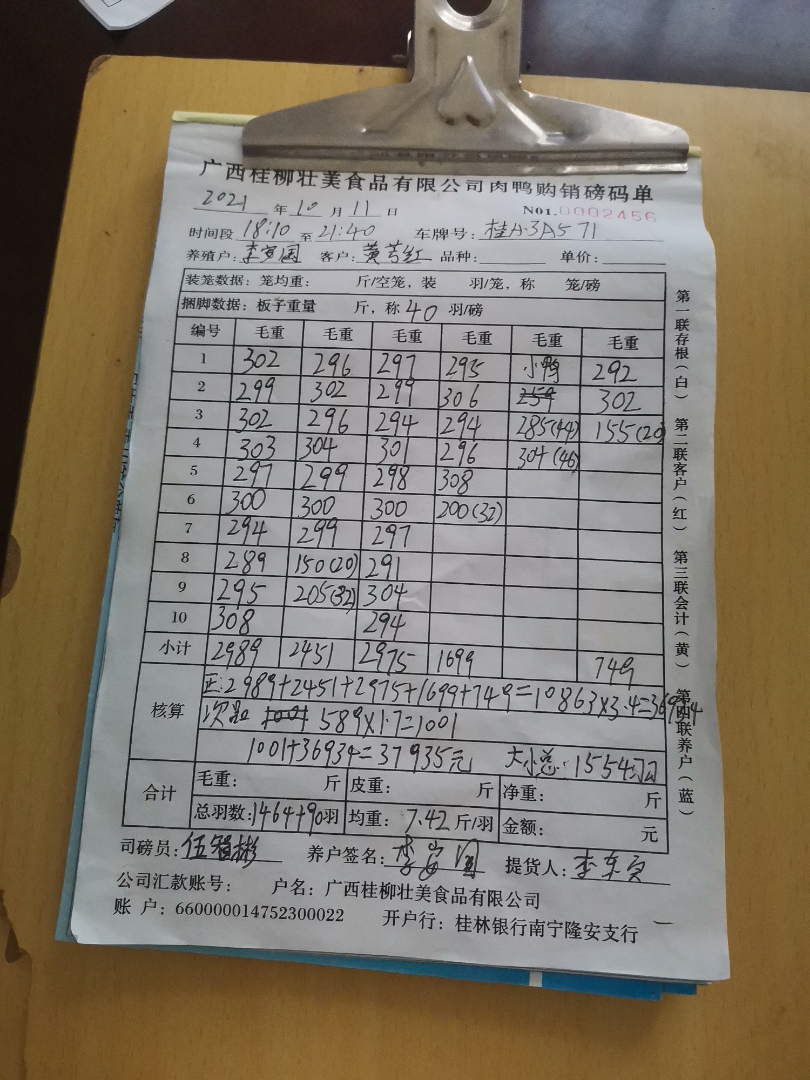 广西桂柳壮美食品有限公司肉鸭购销磅码单
2021 年 10 月 11 日 N01.0002456
时间段 18:10 至 21:40 车牌号: 桂A·3A571
养殖户: 李安国 客户: 黄芳红 品种: 单价:
装笼数据: 笼均重: 斤/空笼, 装 羽/笼, 称 笼/磅
捆脚数据: 板子重量 斤, 称 40 羽/磅
编号 毛重 毛重 毛重 毛重 毛重 毛重
1 302 296 297 295 小鸭 292
2 299 302 299 306 259 302
3 302 296 294 294 285(44) 155(20)
4 303 304 301 296 304(46)
5 297 299 298 308
6 300 300 300 200(32)
7 294 299 297
8 289 150(20) 291
9 295 205(32) 304
10 308 294
小计 2989 2451 2975 1699 749
核算
正:2989+2451+2975+1699+749=10863×3.4=36934
次 589×1.7=1001
1001+36934=37935元 大小总:1554羽
合计
毛重: 斤 皮重: 斤 净重: 斤
总羽数:1464+90羽 均重: 7.42 斤/羽 金额: 元
司磅员: 伍智彬 养户签名: 李安国 提货人: 李东
公司汇款账号: 户名: 广西桂柳壮美食品有限公司
账 户: 660000014752300022 开户行: 桂林银行南宁隆安支行
第一联存根(白) 第二联客户(红) 第三联会计(黄) 第四联养户(蓝)